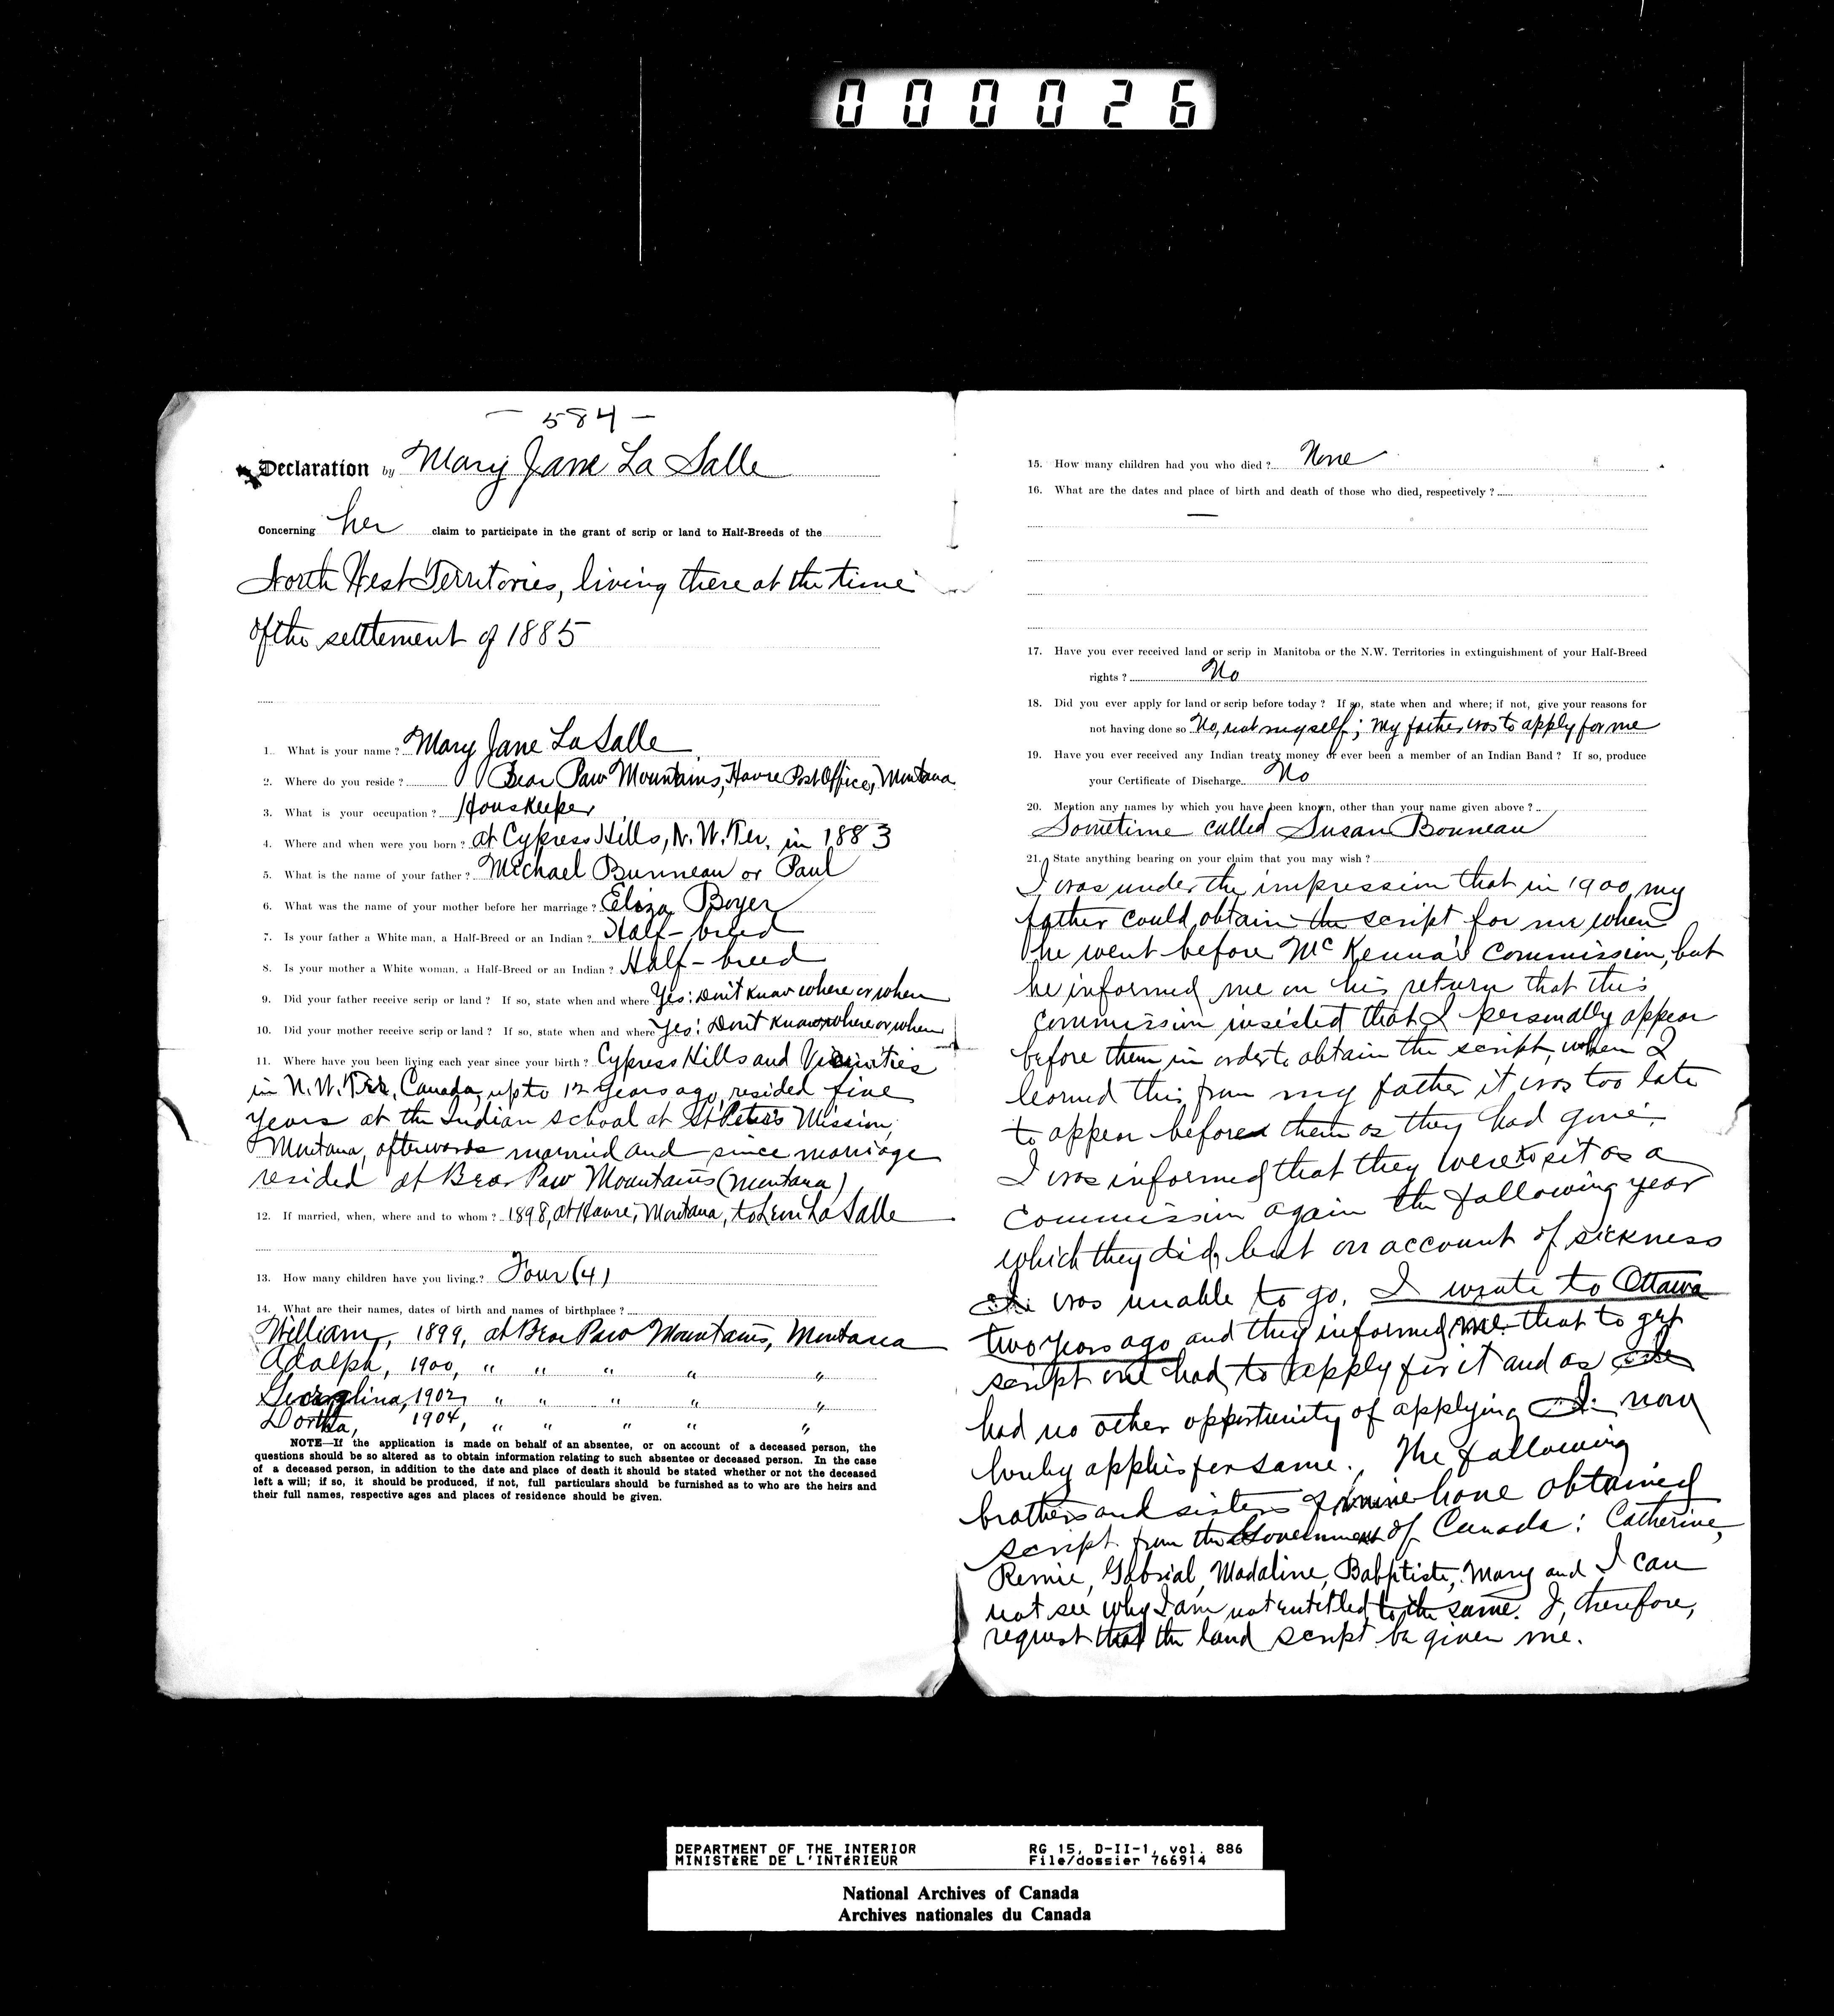 000026
— 584 —
Declaration by Mary Jane La Salle
Concerning her claim to participate in the grant of scrip or land to Half-Breeds of the
North West Territories, living there at the time
of the settlement of 1885
1. What is your name? Mary Jane La Salle
2. Where do you reside? Bear Paw Mountains, Havre Post Office, Montana
3. What is your occupation? Houskeeper
4. Where and when were you born? at Cypress Hills, N.W. Ter. in 1883
5. What is the name of your father? Michael Bunneau or Paul
6. What was the name of your mother before her marriage? Eliza Boyer
7. Is your father a White man, a Half-Breed or an Indian? Half-breed
8. Is your mother a White woman, a Half-Breed or an Indian? Half-breed
9. Did your father receive scrip or land? If so, state when and where Yes: Don't know where or when
10. Did your mother receive scrip or land? If so, state when and where Yes: Don't know where or when
11. Where have you been living each year since your birth? Cypress Hills and Vicinities
in N.W. Ter. Canada, up to 12 years ago, resided five
years at the Indian school at St Peter's Mission,
Montana, afterwards married and since marriage
resided at Bear Paw Mountains (Montana)
12. If married, when, where and to whom? 1898, at Havre, Montana, to Leon La Salle
13. How many children have you living? Four (4)
14. What are their names, dates of birth and names of birthplace?
William, 1899, at Bear Paw Mountains, Montana
Adolph, 1900, " " " " "
Georglina, 1902, " " " " "
Dortha, 1904, " " " " "
NOTE—If the application is made on behalf of an absentee, or on account of a deceased person, the
questions should be so altered as to obtain information relating to such absentee or deceased person. In the case
of a deceased person, in addition to the date and place of death it should be stated whether or not the deceased
left a will; if so, it should be produced, if not, full particulars should be furnished as to who are the heirs and
their full names, respective ages and places of residence should be given.
15. How many children had you who died? None
16. What are the dates and place of birth and death of those who died, respectively?
—
17. Have you ever received land or scrip in Manitoba or the N.W. Territories in extinguishment of your Half-Breed
rights? No
18. Did you ever apply for land or scrip before today? If so, state when and where; if not, give your reasons for
not having done so No, not myself; My father was to apply for me
19. Have you ever received any Indian treaty money or ever been a member of an Indian Band? If so, produce
your Certificate of Discharge. No
20. Mention any names by which you have been known, other than your name given above?
Sometime called Susan Bouneau
21. State anything bearing on your claim that you may wish?
I was under the impression that in 1900, my
father could obtain the script for me when
he went before McKenna's Commission, but
he informed me on his return that this
Commission insisted that I personally appear
before them in order to obtain the script, when I
learned this from my father it was too late
to appear before them as they had gone.
I was informed that they were to sit as a
Commission again the following year
which they did, but on account of sickness
was unable to go. I wrote to Ottawa
two years ago and they informed me that to get
script one had to apply for it and as
had no other opportunity of applying I now
hereby applies for same. The following
brothers and sisters of mine have obtained
script from the Government of Canada: Catherine,
Remie, Gabrial, Madaline, Babptiste, Mary and I can
not see why I am not entitled to the same. I, therefore,
request that the land script be given me.
DEPARTMENT OF THE INTERIOR RG 15, D-II-1, vol. 886
MINISTÈRE DE L'INTÉRIEUR File/dossier 766914
National Archives of Canada
Archives nationales du Canada